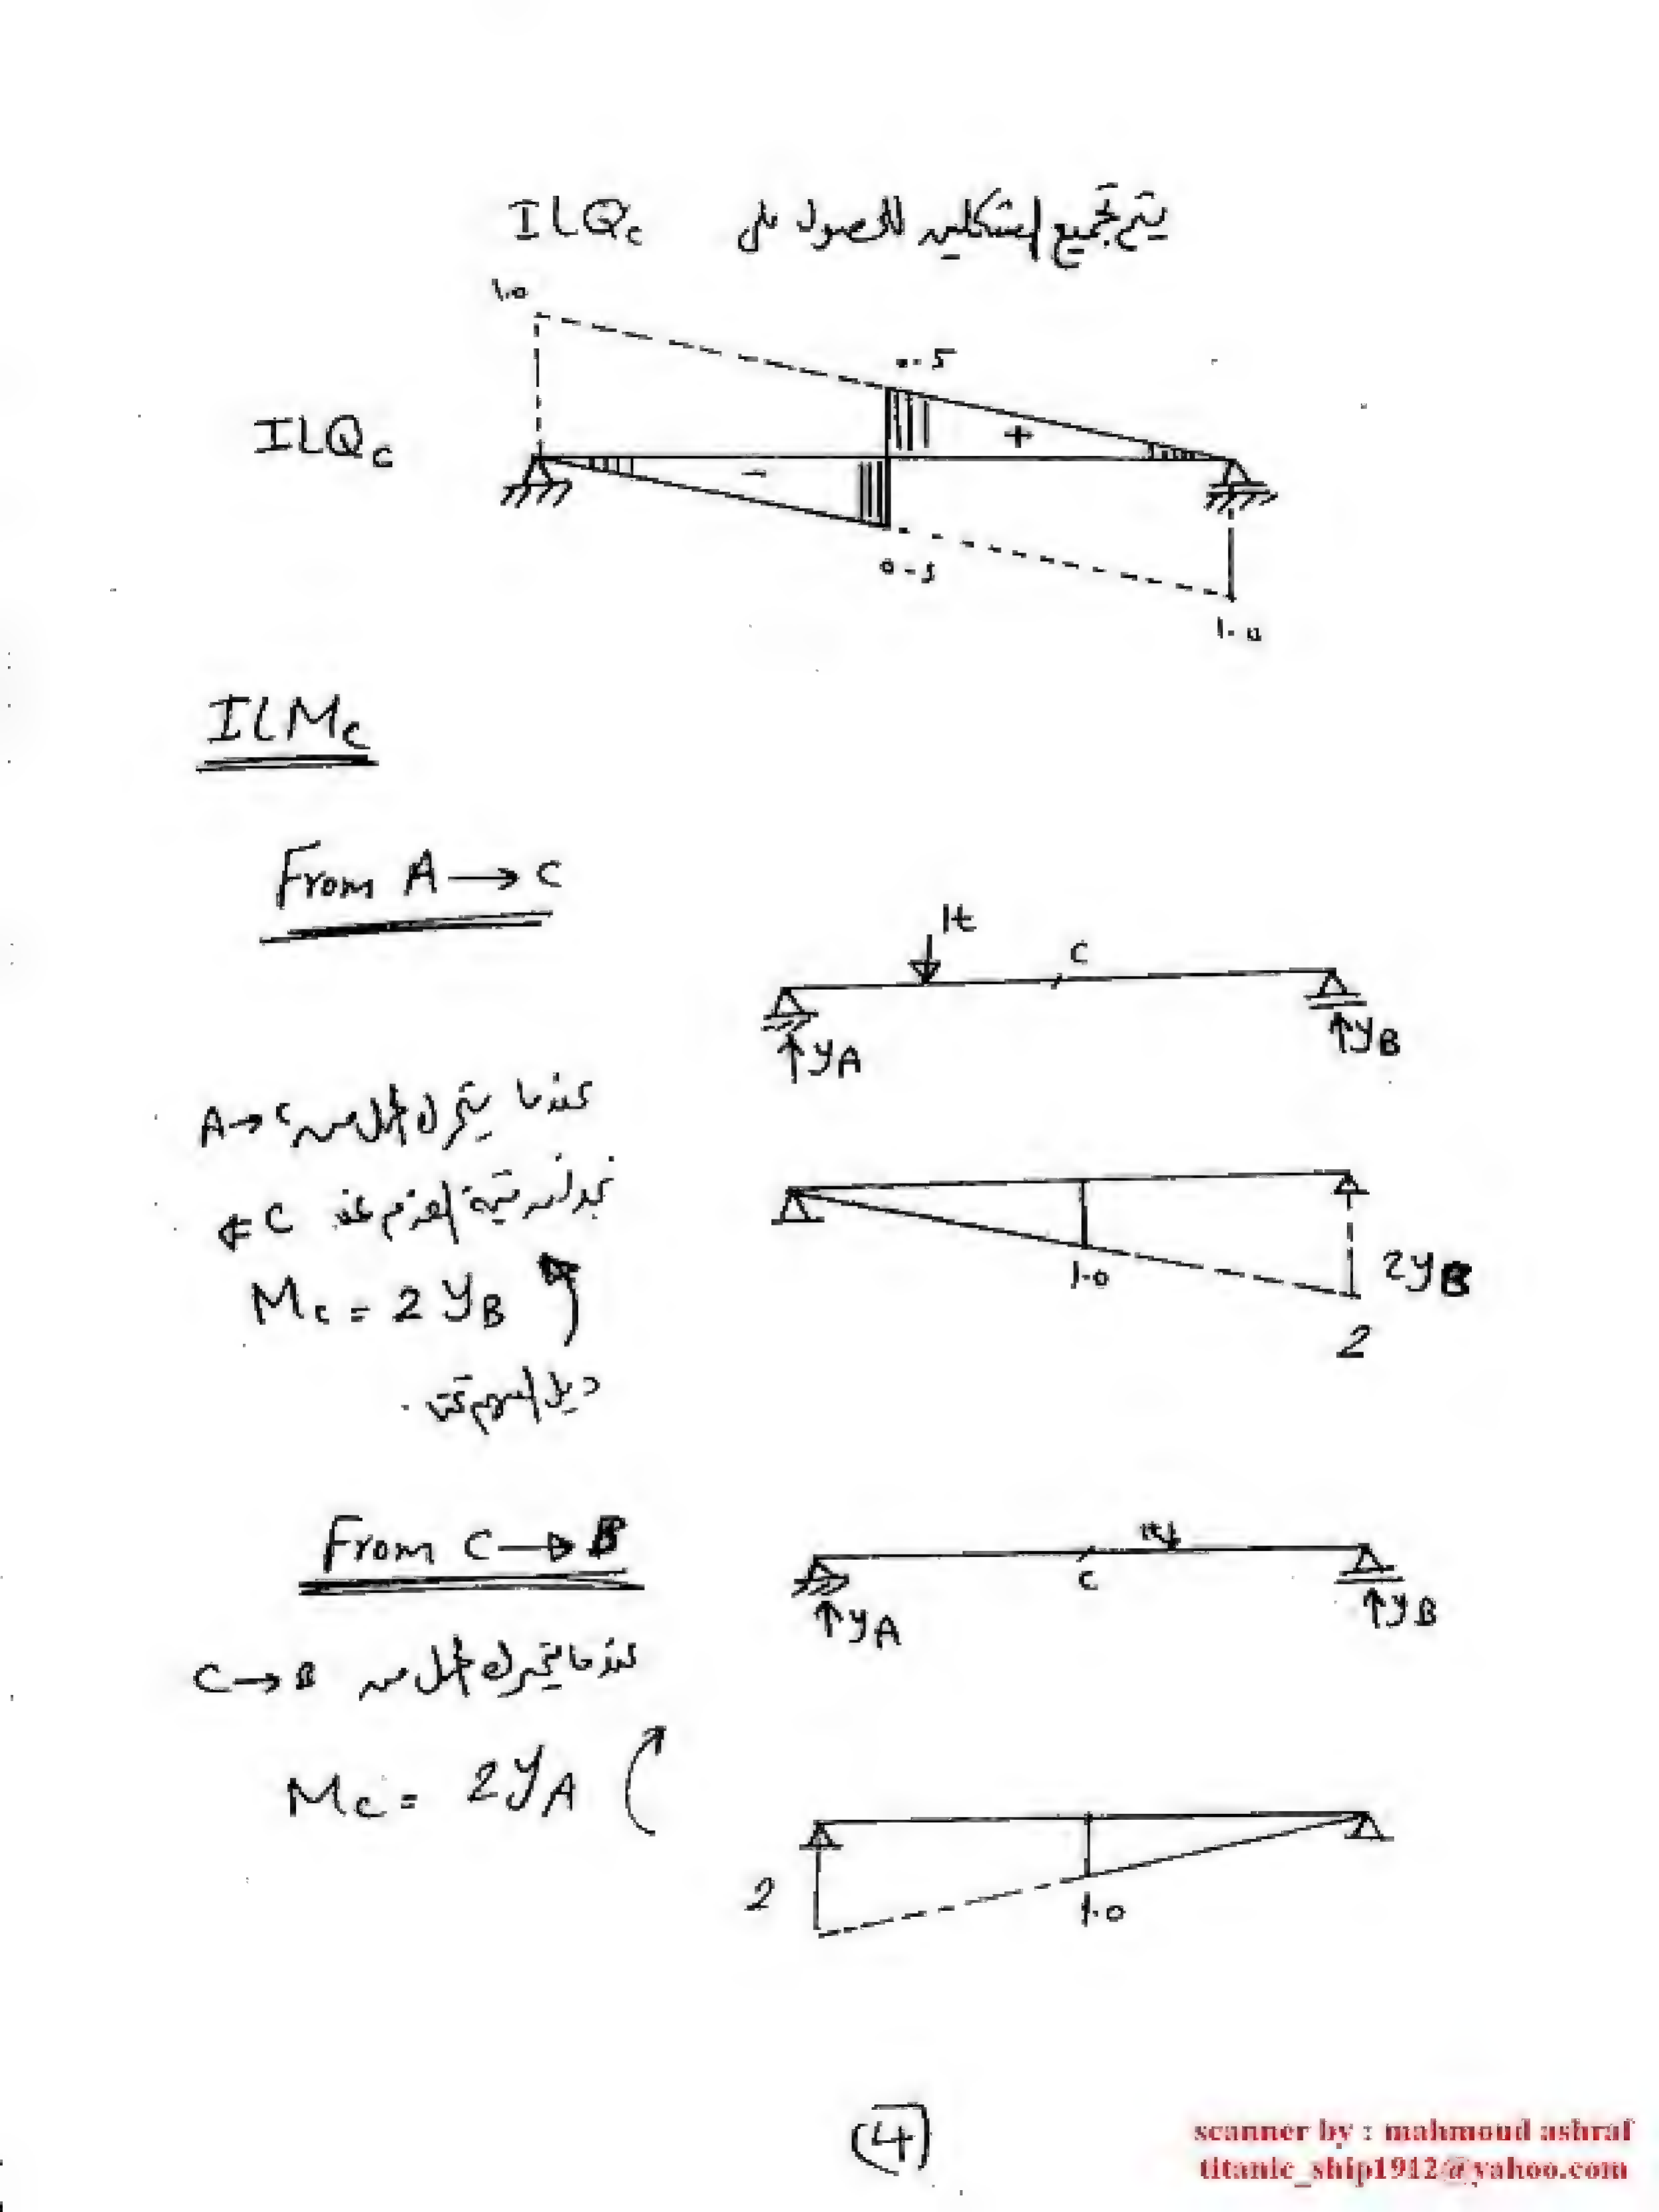 يتم تجميع الشكلين للحصول على ILQc
1.0
0.5
ILQc
+
-
0.5
1.0
ILMc
From A → C
1t
C
yA
yB
عندما يتحرك الحمل من A→C
نجد أن قيمة العزم عند C
Mc = 2 yB
1.0
2yB
2
From C → B
1t
C
yA
yB
عندما يتحرك الحمل من C→B
Mc = 2yA
2
1.0
(4)
scanner by : mahmoud ashraf
titanic_ship1912@yahoo.com